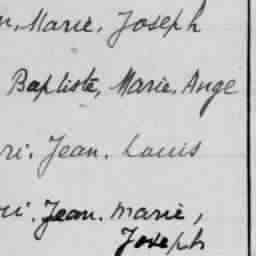 n, Marie, Joseph
Baptiste, Marie, Ange
ri. Jean. Louis
ri. Jean. Marie,
Joseph